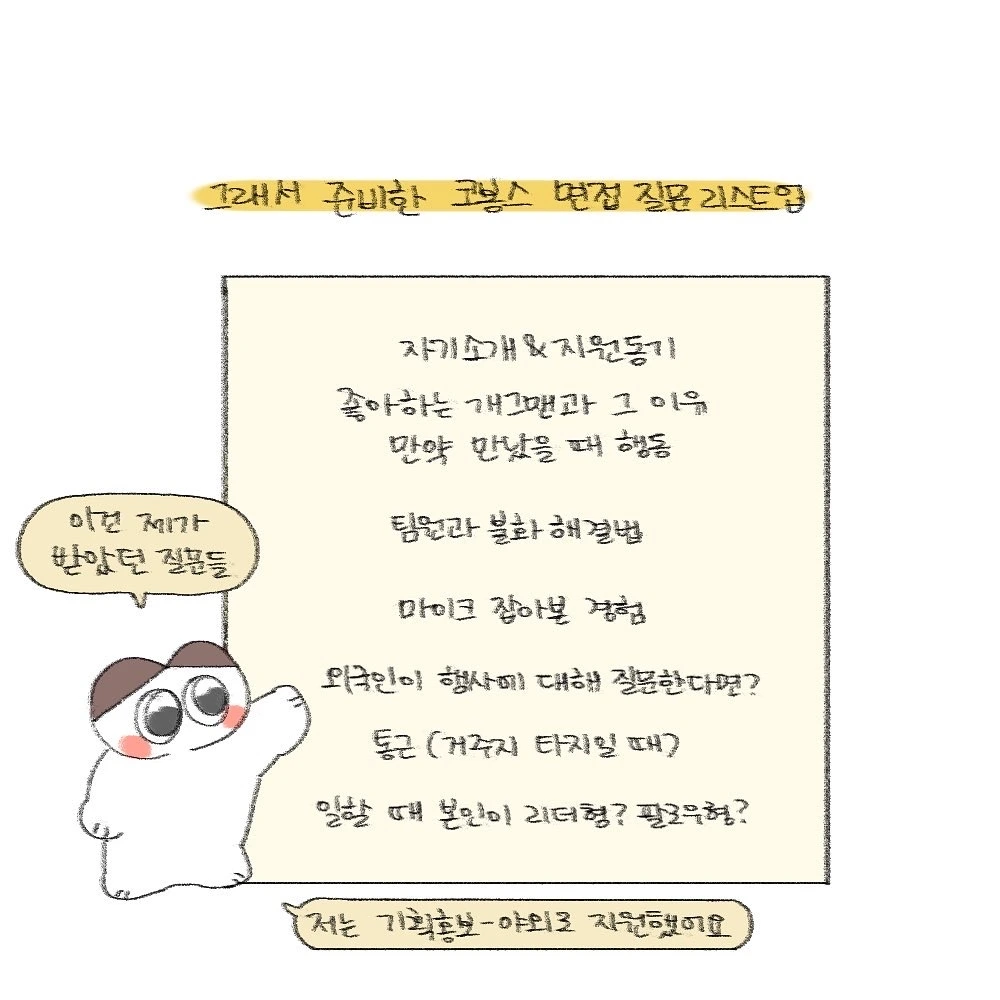 그래서 준비한 코봉스 면접 질문 리스트업
자기소개 & 지원동기
좋아하는 개그맨과 그 이유
만약 만났을 때 행동
이건 제가
받았던 질문들
팀원과 불화 해결법
마이크 잡아본 경험
외국인이 행사에 대해 질문한다면?
통근 (거주지 타지일 때)
일할 때 본인이 리더형? 팔로우형?
저는 기획홍보-야외로 지원했어요